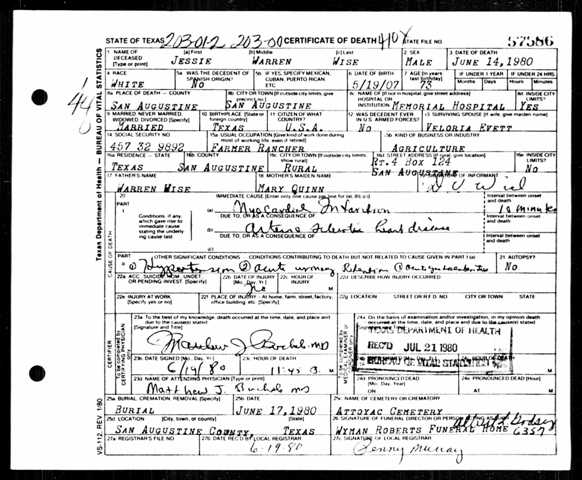 STATE OF TEXAS 203-01-2 203-00 CERTIFICATE OF DEATH 410X STATE FILE NO. 57586
1 NAME OF DECEASED (Type or print) (a) First JESSIE (b) Middle WARREN (c) Last WISE 2 SEX MALE 3 DATE OF DEATH JUNE 14, 1980
4 RACE WHITE 5a WAS THE DECEDENT OF SPANISH ORIGIN? NO 5b IF YES, SPECIFY MEXICAN, CUBAN, PUERTO RICAN ETC. 6 DATE OF BIRTH 5/19/07 7 AGE (In years last birthday) 73 IF UNDER 1 YEAR Months Days IF UNDER 24 HRS Hours Minutes
8a PLACE OF DEATH - COUNTY SAN AUGUSTINE 8b CITY OR TOWN SAN AUGUSTINE 8c NAME OF (If not in hospital give street address) HOSPITAL OR INSTITUTION MEMORIAL HOSPITAL 8d INSIDE CITY LIMITS YES
9 MARRIED NEVER MARRIED, WIDOWED DIVORCED (Specify) MARRIED 10 BIRTHPLACE (State or foreign country) TEXAS 11 CITIZEN OF WHAT COUNTRY? U.S.A. 12 WAS DECEDENT EVER IN U.S. ARMED FORCES? NO 13 SURVIVING SPOUSE (If wife, give maiden name) VELORIA EVETT
14 SOCIAL SECURITY NO 457 32 9892 15a USUAL OCCUPATION (Give kind of work done during most of working life, even if retired) FARMER RANCHER 15b KIND OF BUSINESS OR INDUSTRY AGRICULTURE
16a RESIDENCE - STATE TEXAS 16b COUNTY SAN AUGUSTINE 16c CITY OR TOWN RURAL 16d STREET ADDRESS RT. 4 BOX SAN AUGUSTINE INSIDE CITY LIMITS NO
17 FATHER'S NAME WARREN WISE 18 MOTHER'S MAIDEN NAME MARY QUINN
20 PART I IMMEDIATE CAUSE Interval between onset and death
(a) Myocardial Infarction
DUE TO, OR AS A CONSEQUENCE OF
Conditions, if any which gave rise to immediate cause stating the underlying cause last
(b) heart disease
DUE TO, OR AS A CONSEQUENCE OF Interval between onset and death
PART II OTHER SIGNIFICANT CONDITIONS CONDITIONS CONTRIBUTING TO DEATH BUT NOT RELATED TO CAUSE GIVEN IN PART I (a) 21 AUTOPSY? NO
Hypertension acute urinary Retention
22b DATE OF INJURY (Mo. Day Yr) No 22c HOUR OF INJURY 22d DESCRIBE HOW INJURY OCCURRED
22e INJURY AT WORK (Specify yes or no) 22f PLACE OF INJURY - At home, farm, street, factory, office building, etc. (Specify) 22g LOCATION STREET OR R.F.D. NO CITY OR TOWN STATE
23a To the best of my knowledge, death occurred at the time, date, and place and due to the cause(s) stated (Signature and Title)
24a On the basis of examination and/or investigation, in my opinion, death occurred at the time, date, and place and due to the cause(s) stated
TEXAS DEPARTMENT OF HEALTH
REC'D JUL 21 1980
BUREAU OF VITAL STATISTICS
23b DATE SIGNED (Mo. Day Yr) 6/14/80 23c HOUR OF DEATH 24c HOUR OF DEATH
23d NAME OF ATTENDING PHYSICIAN (Type or Print) Matthew J. 24d PRONOUNCED DEAD (Mo. Day Year) 24e PRONOUNCED DEAD (Hour)
25a BURIAL CREMATION, REMOVAL (Specify) BURIAL 25b DATE JUNE 17, 1980 25c NAME OF CEMETERY OR CREMATORY ATTOYAC CEMETERY
25d LOCATION (City, town, or county) (State) SAN AUGUSTINE COUNTY, TEXAS 26 SIGNATURE OF FUNERAL DIRECTOR OR PERSON WYMAN ROBERTS FUNERAL HOME 6357
27a REGISTRAR'S FILE NO 27b DATE REC'D BY LOCAL REGISTRAR 6-19-80 27c SIGNATURE OF LOCAL REGISTRAR Penny Murray
Texas Department of Health — BUREAU OF VITAL STATISTICS
VS-112 REV. 1/80
CAUSE OF DEATH
CERTIFIER